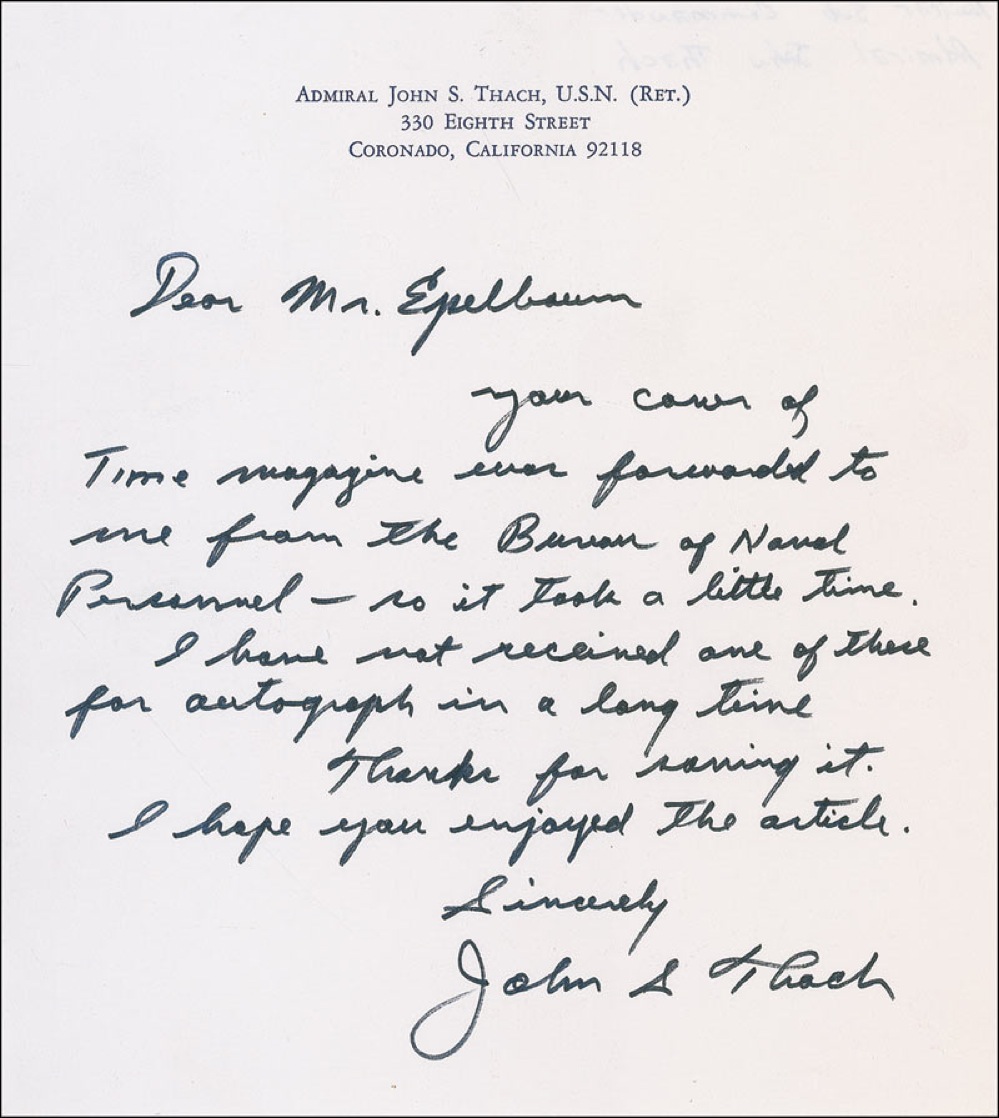 Admiral John S. Thach, U.S.N. (Ret.)
330 Eighth Street
Coronado, California 92118
Dear Mr. Epelbaum
your cover of
Time magazine was forwarded to
me from the Bureau of Naval
Personnel — so it took a little time.
I have not received one of these
for autograph in a long time
Thanks for saving it.
I hope you enjoyed the article.
Sincerely
John S Thach